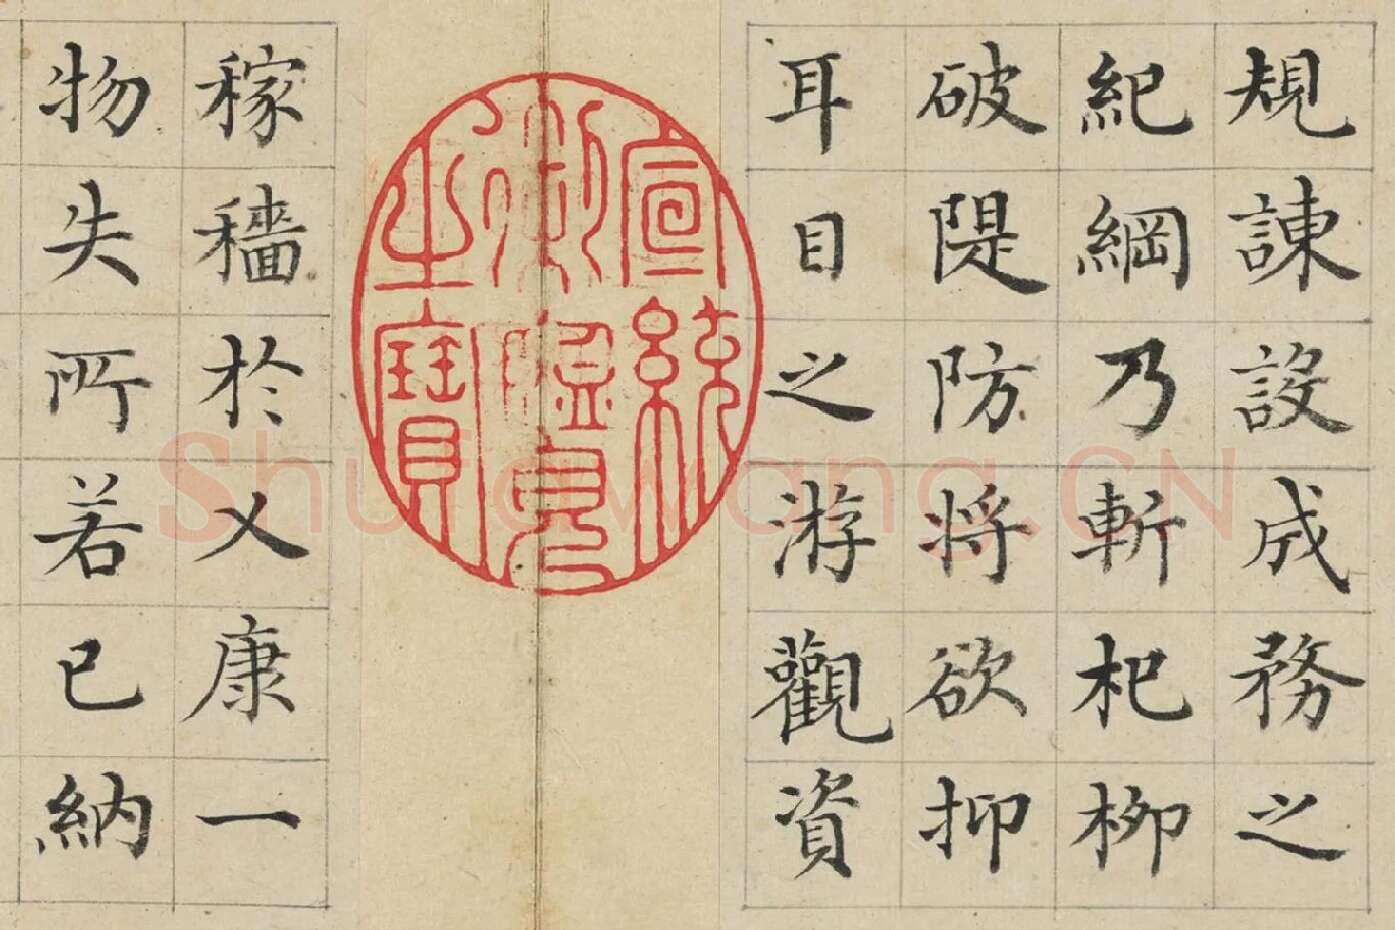 規諫設成務之
紀綱乃斬杞柳
破隄防将欲抑
耳目之游觀資
宣統
御覽
之寶
稼穡於乂康一
物失所若已納
Shufawang.CN